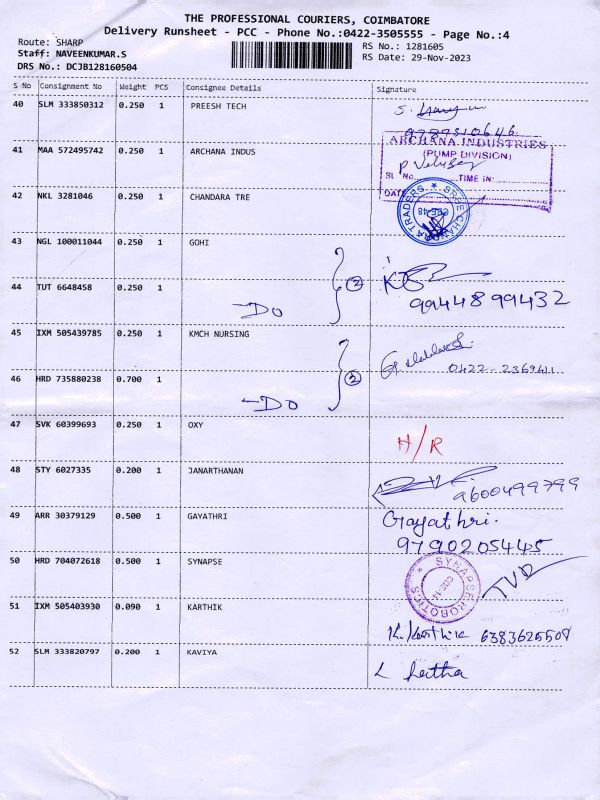 THE PROFESSIONAL COURIERS, COIMBATORE
Delivery Runsheet - PCC - Phone No.:0422-3505555 - Page No.:4
Route: SHARP
RS No.: 1281605
Staff: NAVEENKUMAR.S
RS Date: 29-Nov-2023
DRS No.: DCJB128160504
S No Consignment No Weight PCS Consignee Details Signature
40 SLM 333850312 0.250 1 PREESH TECH
41 MAA 572495742 0.250 1 ARCHANA INDUS
ARCHANA INDUSTRIES
(PUMP DIVISION)
Sl No. TIME IN:
DATE
42 NKL 3281046 0.250 1 CHANDARA TRE
SREE CHANDRA TRADERS
CBE-48
43 NGL 100011044 0.250 1 GOHI
44 TUT 6648458 0.250 1
-DO 2 9944899432
45 IXM 505439785 0.250 1 KMCH NURSING
0422-2369411
46 HRD 735880238 0.700 1
-DO 2
47 SVK 60399693 0.250 1 OXY H/R
48 STY 6027335 0.200 1 JANARTHANAN
9600499799
49 ARR 30379129 0.500 1 GAYATHRI Gayathri.
9790205445
50 HRD 704072618 0.500 1 SYNAPSE
SYNAPSE ROBOTICS
CBE-14
51 IXM 505403930 0.090 1 KARTHIK
K. Karthik 6383625508
52 SLM 333820797 0.200 1 KAVIYA